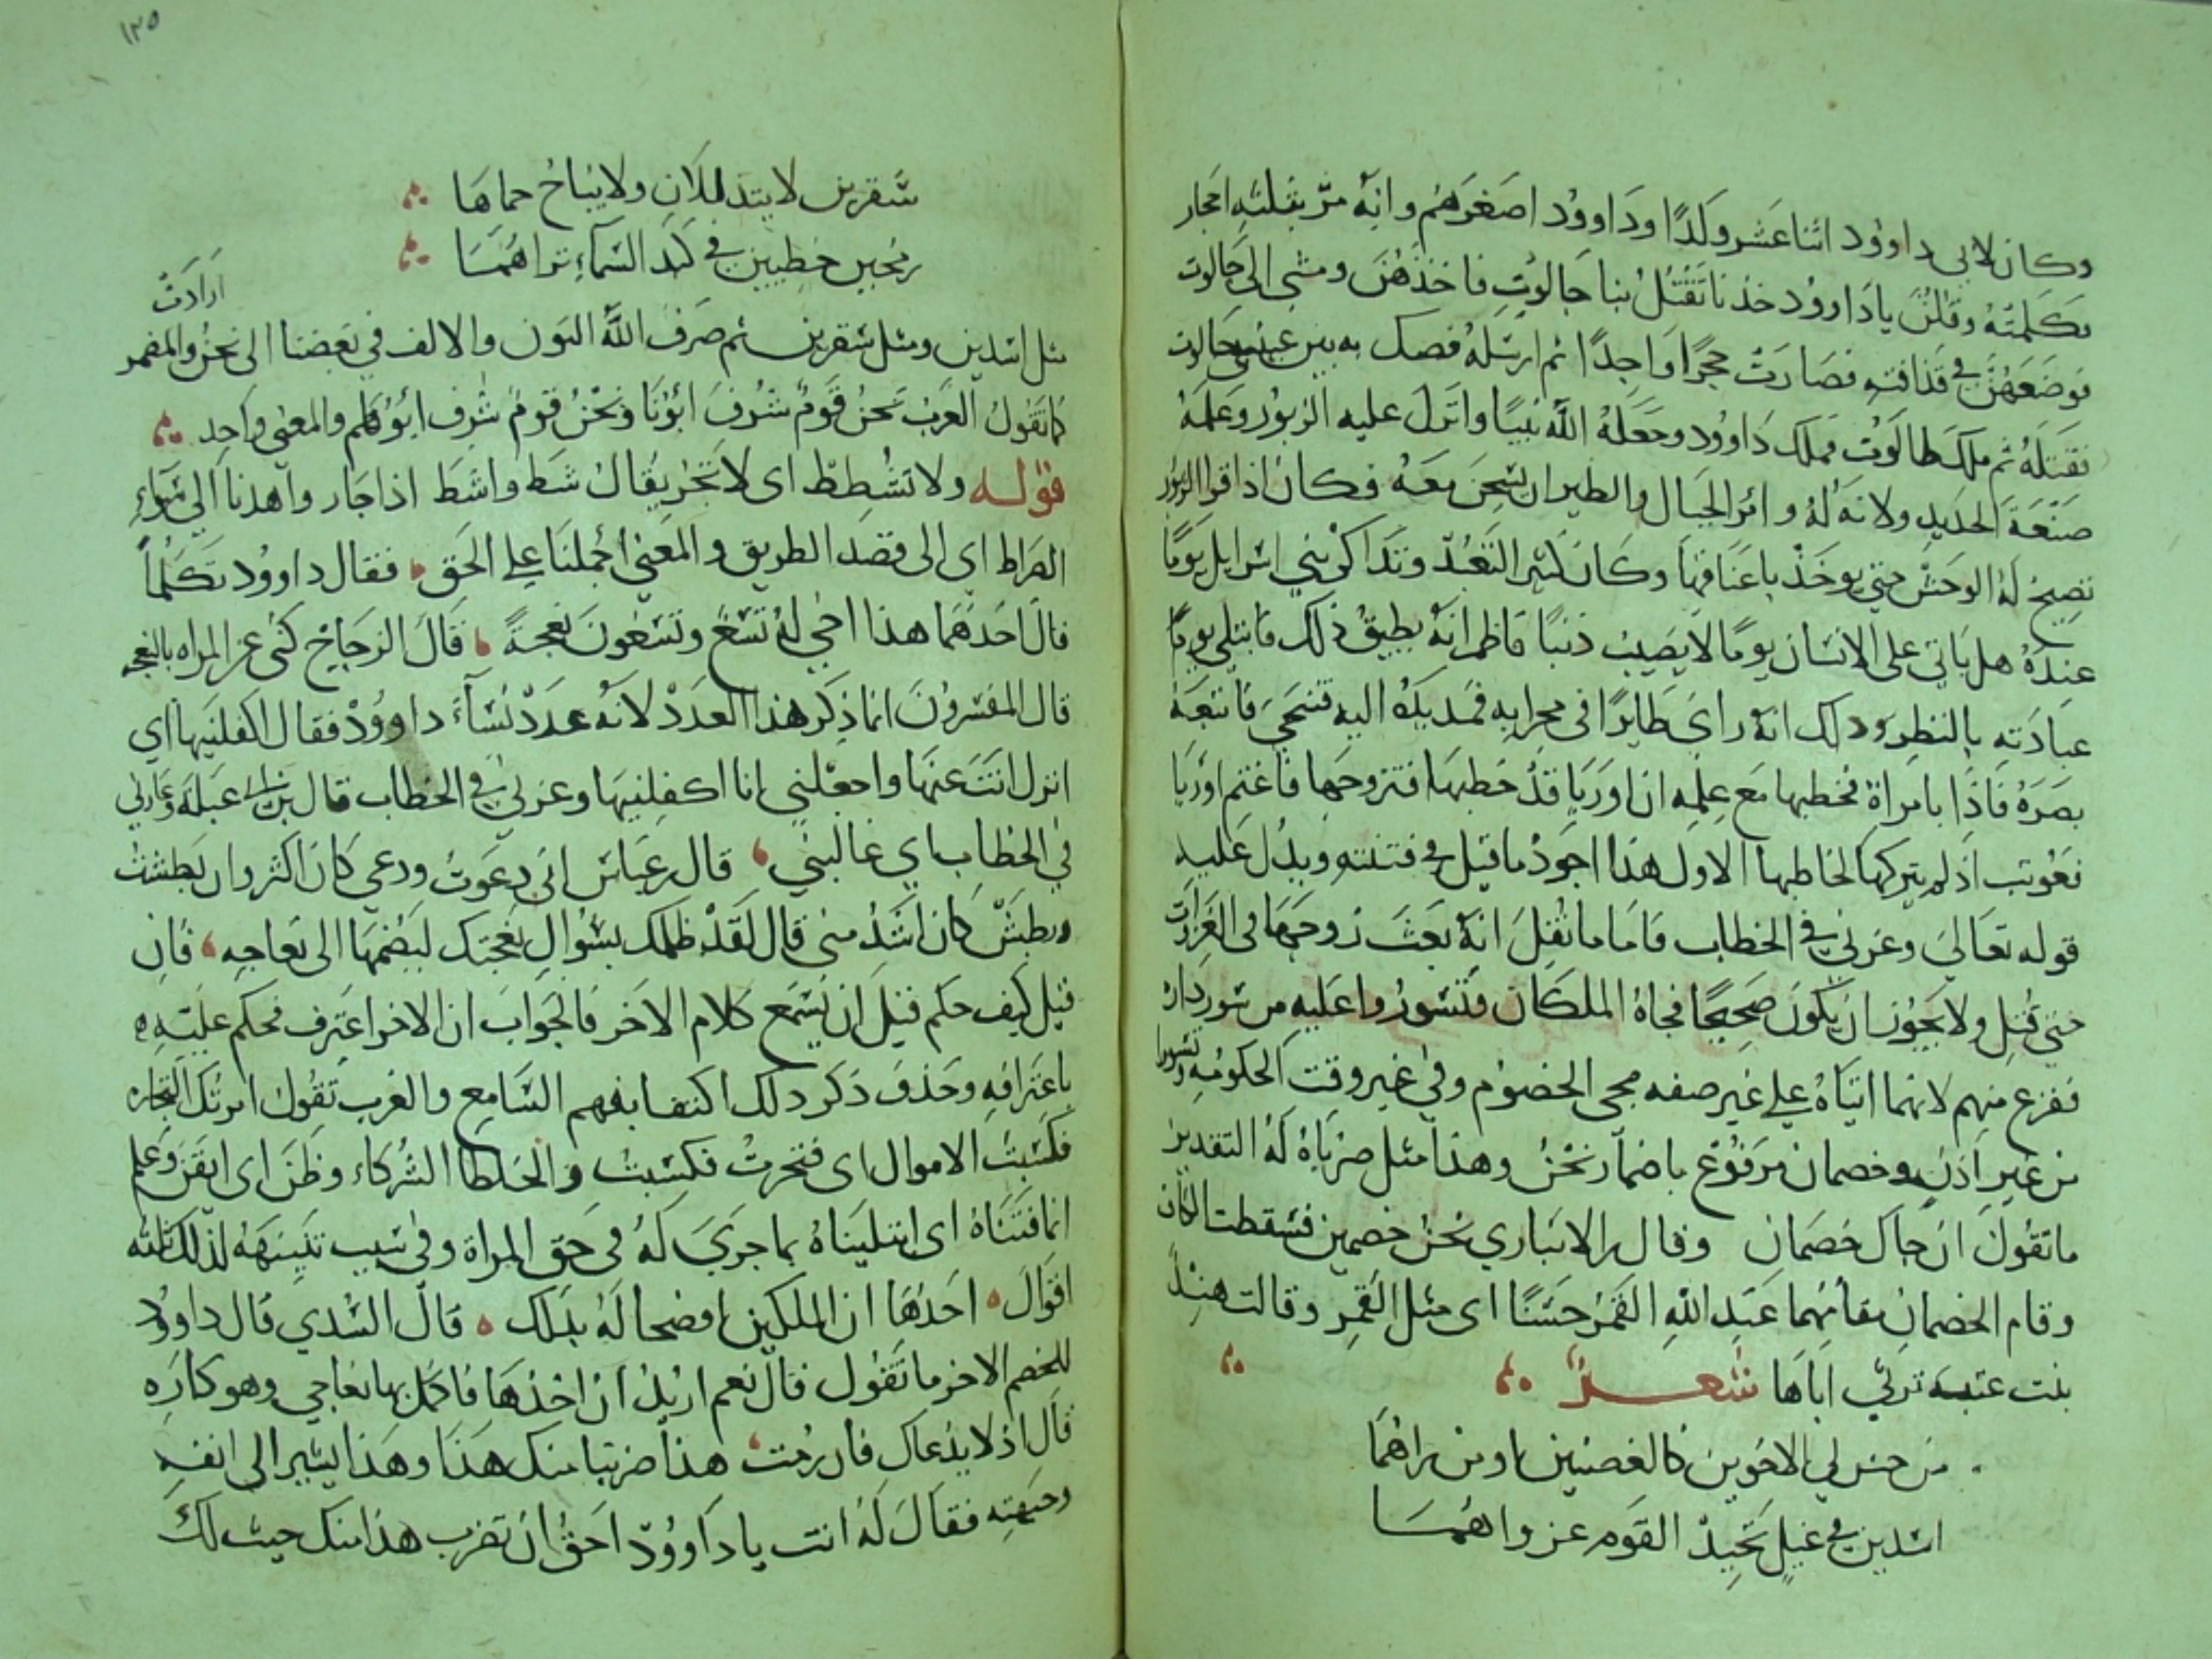 وكان لابي داوود اثنا عشر ولدًا وداوود اصغرهم وانه مر بثلثه احجار
فكلمته وقلن يا داوود خذنا تقتل بنا جالوت فاخذهن ومشى الى جالوت
فوضعهن في قذافته فصارت حجرًا واحدًا ثم ارسله فصك به بين عيني جالوت
فقتله ثم ملك طالوت فملك داوود وجعله الله نبيًا وانزل عليه الزبور وعلمه
صنعة الحديد ولانه له وامر الجبال والطير ان يسبحن معه فكان اذا قرا الزبور
تصيخ له الوحش حتى يوخذ باعناقها وكان كثير التعبد وتذاكر بني اسرايل يومًا
عنده هل ياتي على الانسان يومًا لا يصيب ذنبًا فاظمر انه يطيق ذلك فابتلي يوم
عبادته بالنظر وذلك انه راى طايرًا في محرابه فمد يده اليه فتنحى فاتبعه
بصره فاذا بامراة فخطبها مع علمه ان اوريا قد خطبها فتزوجها فاغتم اوريا
فعوتب اذ لم يتركها لخاطبها الاول هذا اجود ما قيل في فتنته ويدل عليه
قوله تعالى وعزني في الخطاب فاما ما نقل انه بعث زوجها في الغزات
حتى قتل ولا يجوز ان يكون صحيحًا فجاه الملكان فتسوروا عليه من سور داره
ففزع منهم لانهما اتياه على غير صفه مجى الخصوم وفي غير وقت الحكومه وتسورا
من غير اذن وخصمان مرفوع باضمار نحن وهذا مثل ضرباه له التقدير
ما تقول ان جاك خصمان وقال بن الانباري نحن خصمين فسقطت الكاف
وقام الخصمان مقامهما عبد الله القمر حسنًا اى مثل القمر وقالت هند
بنت عتبه ترثي اباها شعر
من حس لي الاخوين كالغصنين او من راهما
اسدين في غيل يحيد القوم عن رواهما
١٢٥
سقرين لا يتذللان ولا يباح حماها
رمحين خطيين في كبد السماء تراهما
ارادت
مثل اسدين ومثل سقرين ثم صرف الله النون والالف في بعضنا الى نحن والمضمر
كما تقول العرب نحن قوم شرف ابونا ونحن قوم شرف ابوهم والمعنى واحد
قوله ولا تشطط اى لا تجر يقال شط واشط اذا جار واهدنا الى سواء
الصراط اى الى قصد الطريق والمعنى احملنا على الحق فقال داوود تكلما
قال احدهما هذا اخي له تسع وتسعون نعجة قال الزجاج كنى عن المراه بالنعجه
قال المفسرون انما ذكر هذا العدد لانه عدد نساء داوود فقال اكفلنيها اي
انزل انت عنها واجعلني انا اكفلنيها وعزني في الخطاب قال بن ابي عبله وعازني
في الخطاب اي غالبني قال بن عباس ان دعوت ودعى كان اكثر وان بطشت
وبطش كان اشد مني قال لقد ظلمك بسوال نعجتك ليضمها الى نعاجه فان
قيل كيف حكم قبل ان يسمع كلام الاخر فالجواب ان الاخر اعترف فحكم عليه
باعترافه وحذف ذكر ذلك اكتفا بفهم السامع والعرب تقول امرتك التجاره
فكسبت الاموال اى فتجرت فكسبت والخلطا الشركاء وظن اى ايقن وعلم
انما فتناه اى ابتليناه بما جرى له في حق المراة وفي سبب تنبهه لذلك ثلثه
اقوال احدها ان الملكين افصحا له بذلك قال السدي قال داوود
للخصم الاخر ما تقول قال نعم اريد ان اخذها فاكمل بها نعاجي وهو كاره
قال اذ لا يدعك فان رمت هذا ضربنا منك هذا وهذا يشير الى انفه
وجبهته فقال له انت يا داوود احق ان تضرب هذا منك حيث لك